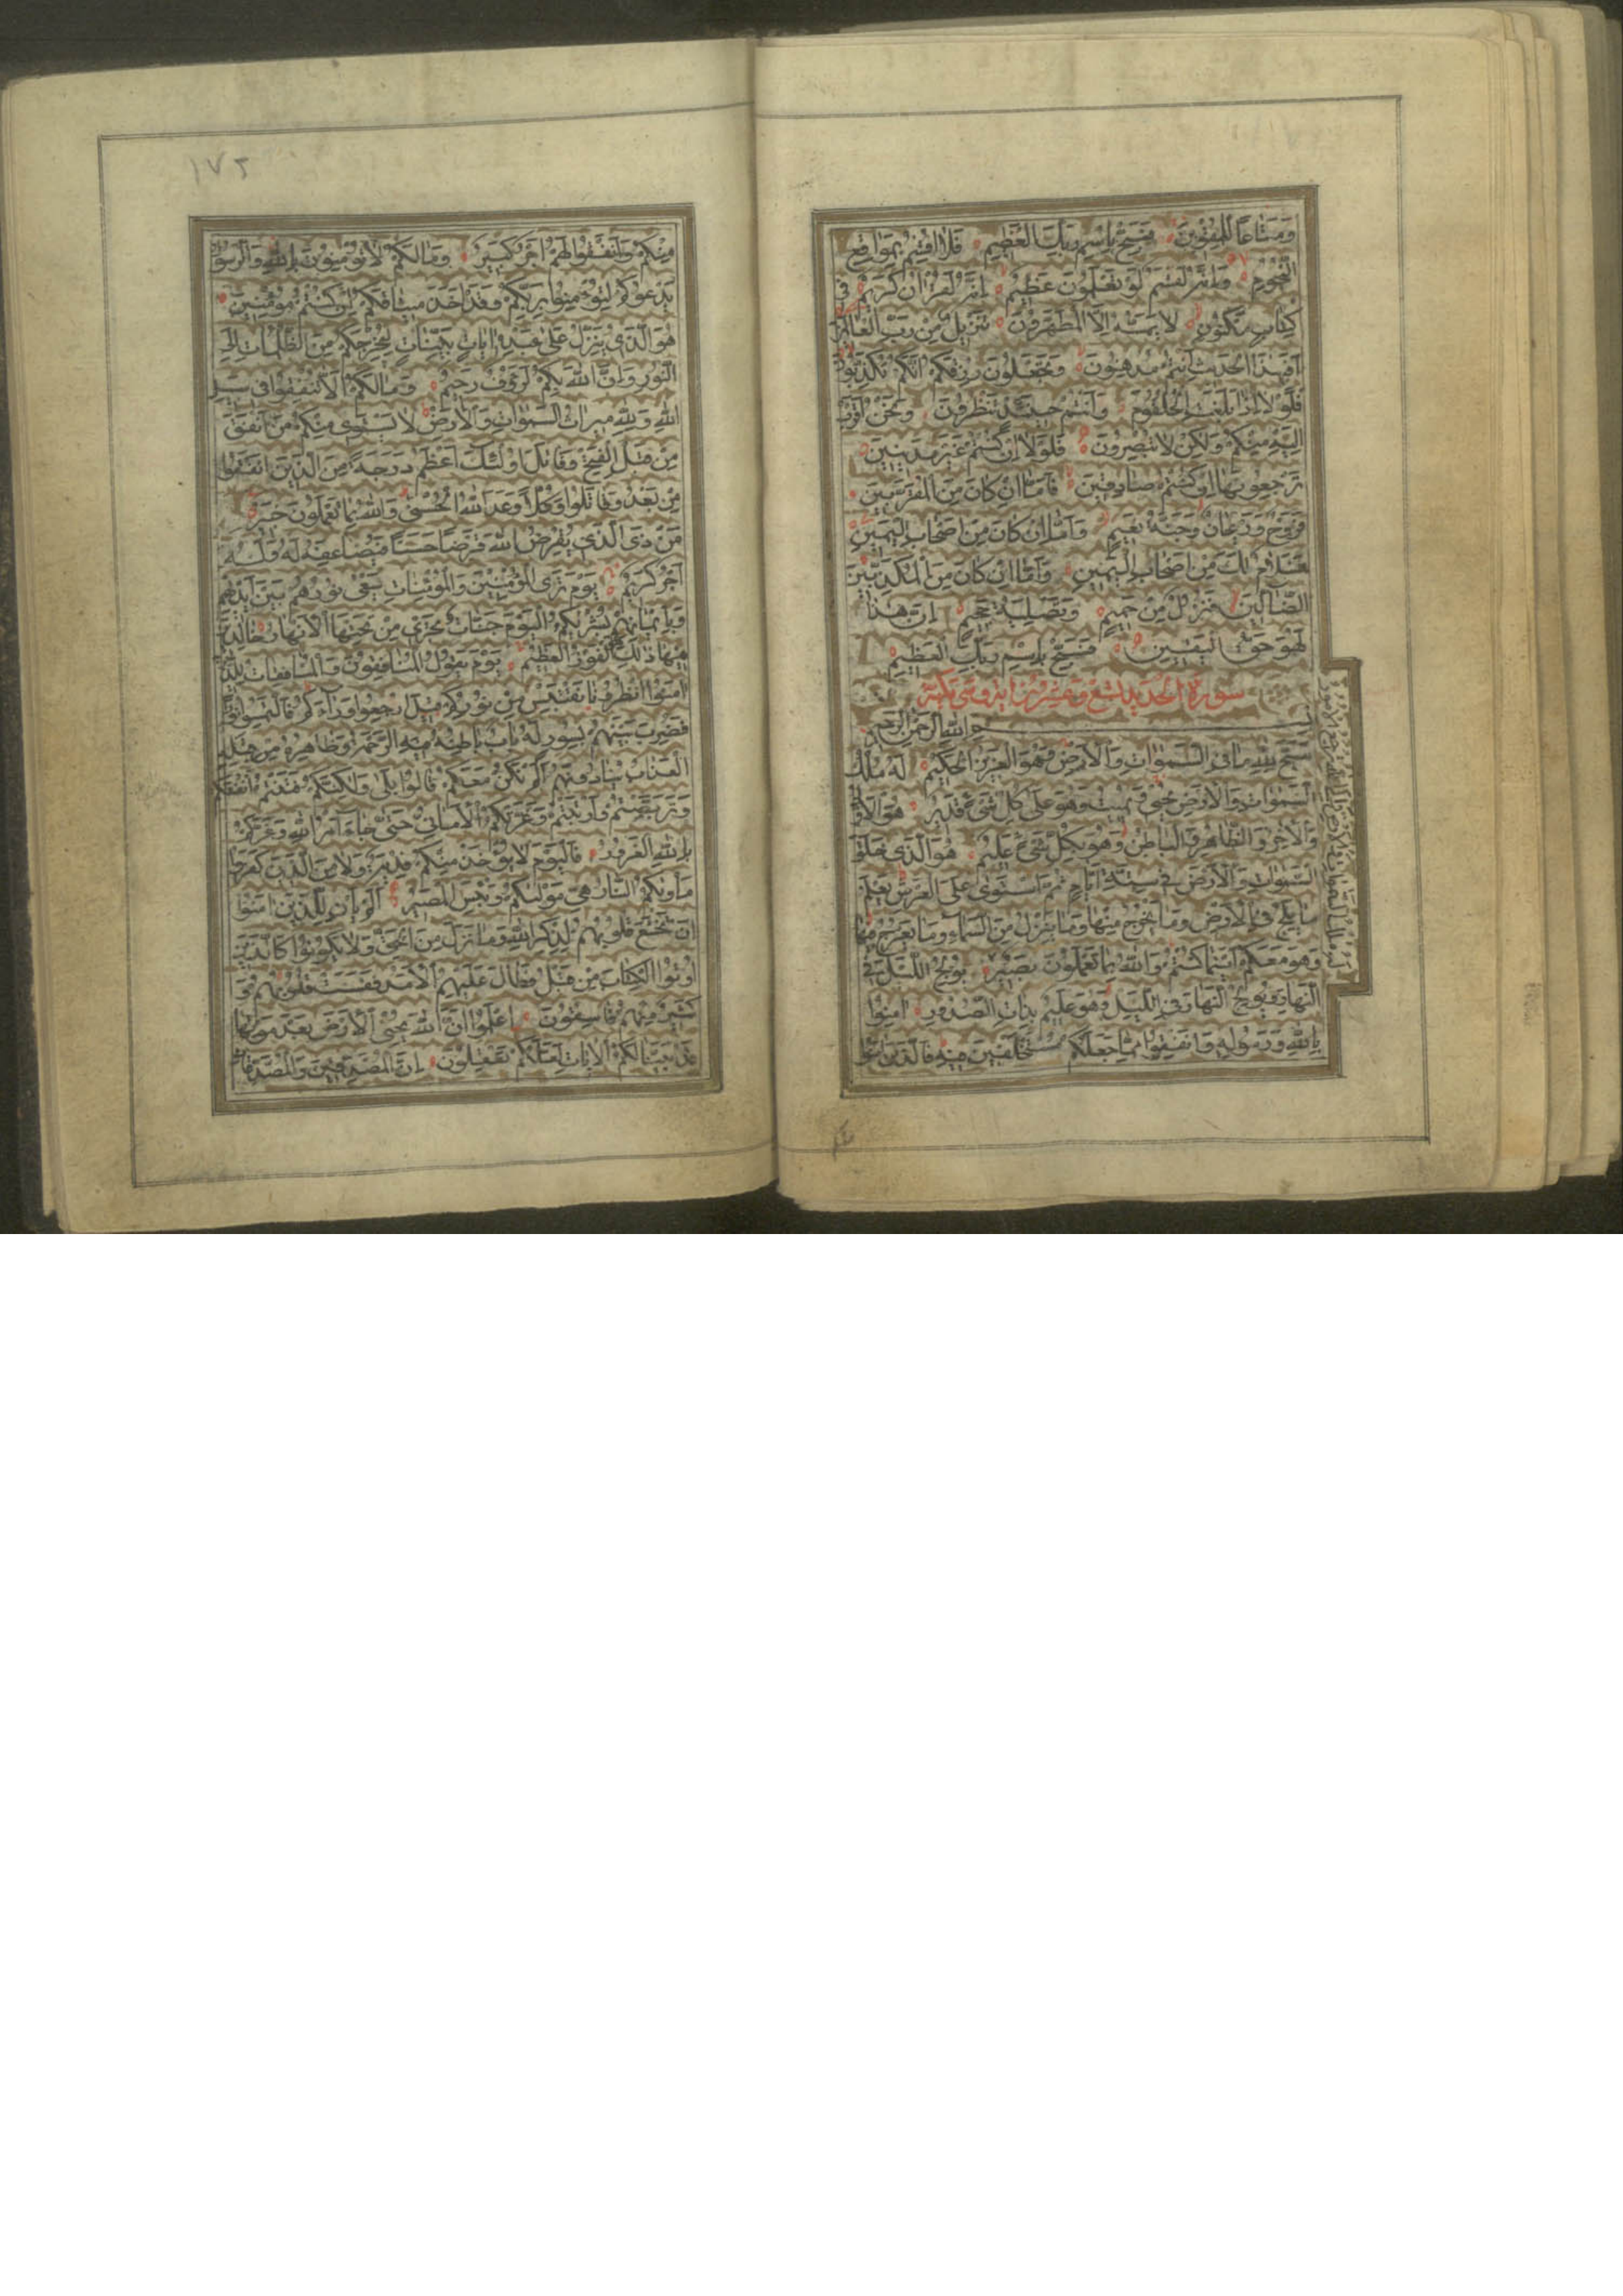 ومتاعا للمقوين فسبح باسم ربك العظيم فلا اقسم بمواقع
النجوم وانه لقسم لو تعلمون عظيم انه لقران كريم في
كتاب مكنون لا يمسه الا المطهرون تنزيل من رب العالمين
افبهذا الحديث انتم مدهنون وتجعلون رزقكم انكم تكذبون
فلولا اذا بلغت الحلقوم وانتم حينئذ تنظرون ونحن اقرب
اليه منكم ولكن لا تبصرون فلولا ان كنتم غير مدينين
ترجعونها ان كنتم صادقين فاما ان كان من المقربين
فروح وريحان وجنة نعيم واما ان كان من اصحاب اليمين
فسلام لك من اصحاب اليمين واما ان كان من المكذبين
الضالين فنزل من حميم وتصلية جحيم ان هذا
لهو حق اليقين فسبح باسم ربك العظيم
سورة الحديد تسع وعشرون اية وهي مكية
بسم الله الرحمن الرحيم
سبح لله ما في السموات والارض وهو العزيز الحكيم له ملك
السموات والارض يحيي ويميت وهو على كل شيء قدير هو الاول
والاخر والظاهر والباطن وهو بكل شيء عليم هو الذي خلق
السموات والارض في ستة ايام ثم استوى على العرش يعلم
ما يلج في الارض وما يخرج منها وما ينزل من السماء وما يعرج فيها
وهو معكم اينما كنتم والله بما تعملون بصير يولج الليل في
النهار ويولج النهار في الليل وهو عليم بذات الصدور امنوا
بالله ورسوله وانفقوا مما جعلكم مستخلفين فيه فالذين امنوا
١٧٢
منكم وانفقوا لهم اجر كبير وما لكم لا تؤمنون بالله والرسول
يدعوكم لتؤمنوا بربكم وقد اخذ ميثاقكم ان كنتم مؤمنين
هو الذي ينزل على عبده ايات بينات ليخرجكم من الظلمات الى
النور وان الله بكم لرؤف رحيم وما لكم الا تنفقوا في سبيل
الله ولله ميراث السموات والارض لا يستوي منكم من انفق
من قبل الفتح وقاتل اولئك اعظم درجة من الذين انفقوا
من بعد وقاتلوا وكلا وعد الله الحسنى والله بما تعملون خبير
من ذى الذي يقرض الله قرضا حسنا فيضاعفه له وله
اجر كريم يوم ترى المؤمنين والمؤمنات يسعى نورهم بين ايديهم
وبايمانهم بشريكم اليوم جنات تجري من تحتها الانهار خالدين
فيها ذلك الفوز العظيم يوم يقول المنافقون والمنافقات للذين
امنوا انظرونا نقتبس من نوركم قيل ارجعوا وراءكم فالتمسوا نورا
فضرب بينهم بسور له باب باطنه فيه الرحمة وظاهره من قبله
العذاب ينادونهم الم نكن معكم قالوا بلى ولكنكم فتنتم انفسكم
وتربصتم وارتبتم وغرتكم الاماني حتى جاء امر الله وغركم
بالله الغرور فاليوم لا يؤخذ منكم فدية ولا من الذين كفروا
ماويكم النار هي موليكم وبئس المصير الم يان للذين امنوا
ان تخشع قلوبهم لذكر الله وما نزل من الحق ولا يكونوا كالذين
اوتوا الكتاب من قبل فطال عليهم الامد فقست قلوبهم و
كثير منهم فاسقون اعلموا ان الله يحيي الارض بعد موتها
قد بينا لكم الايات لعلكم تعقلون ان المصدقين والمصدقات